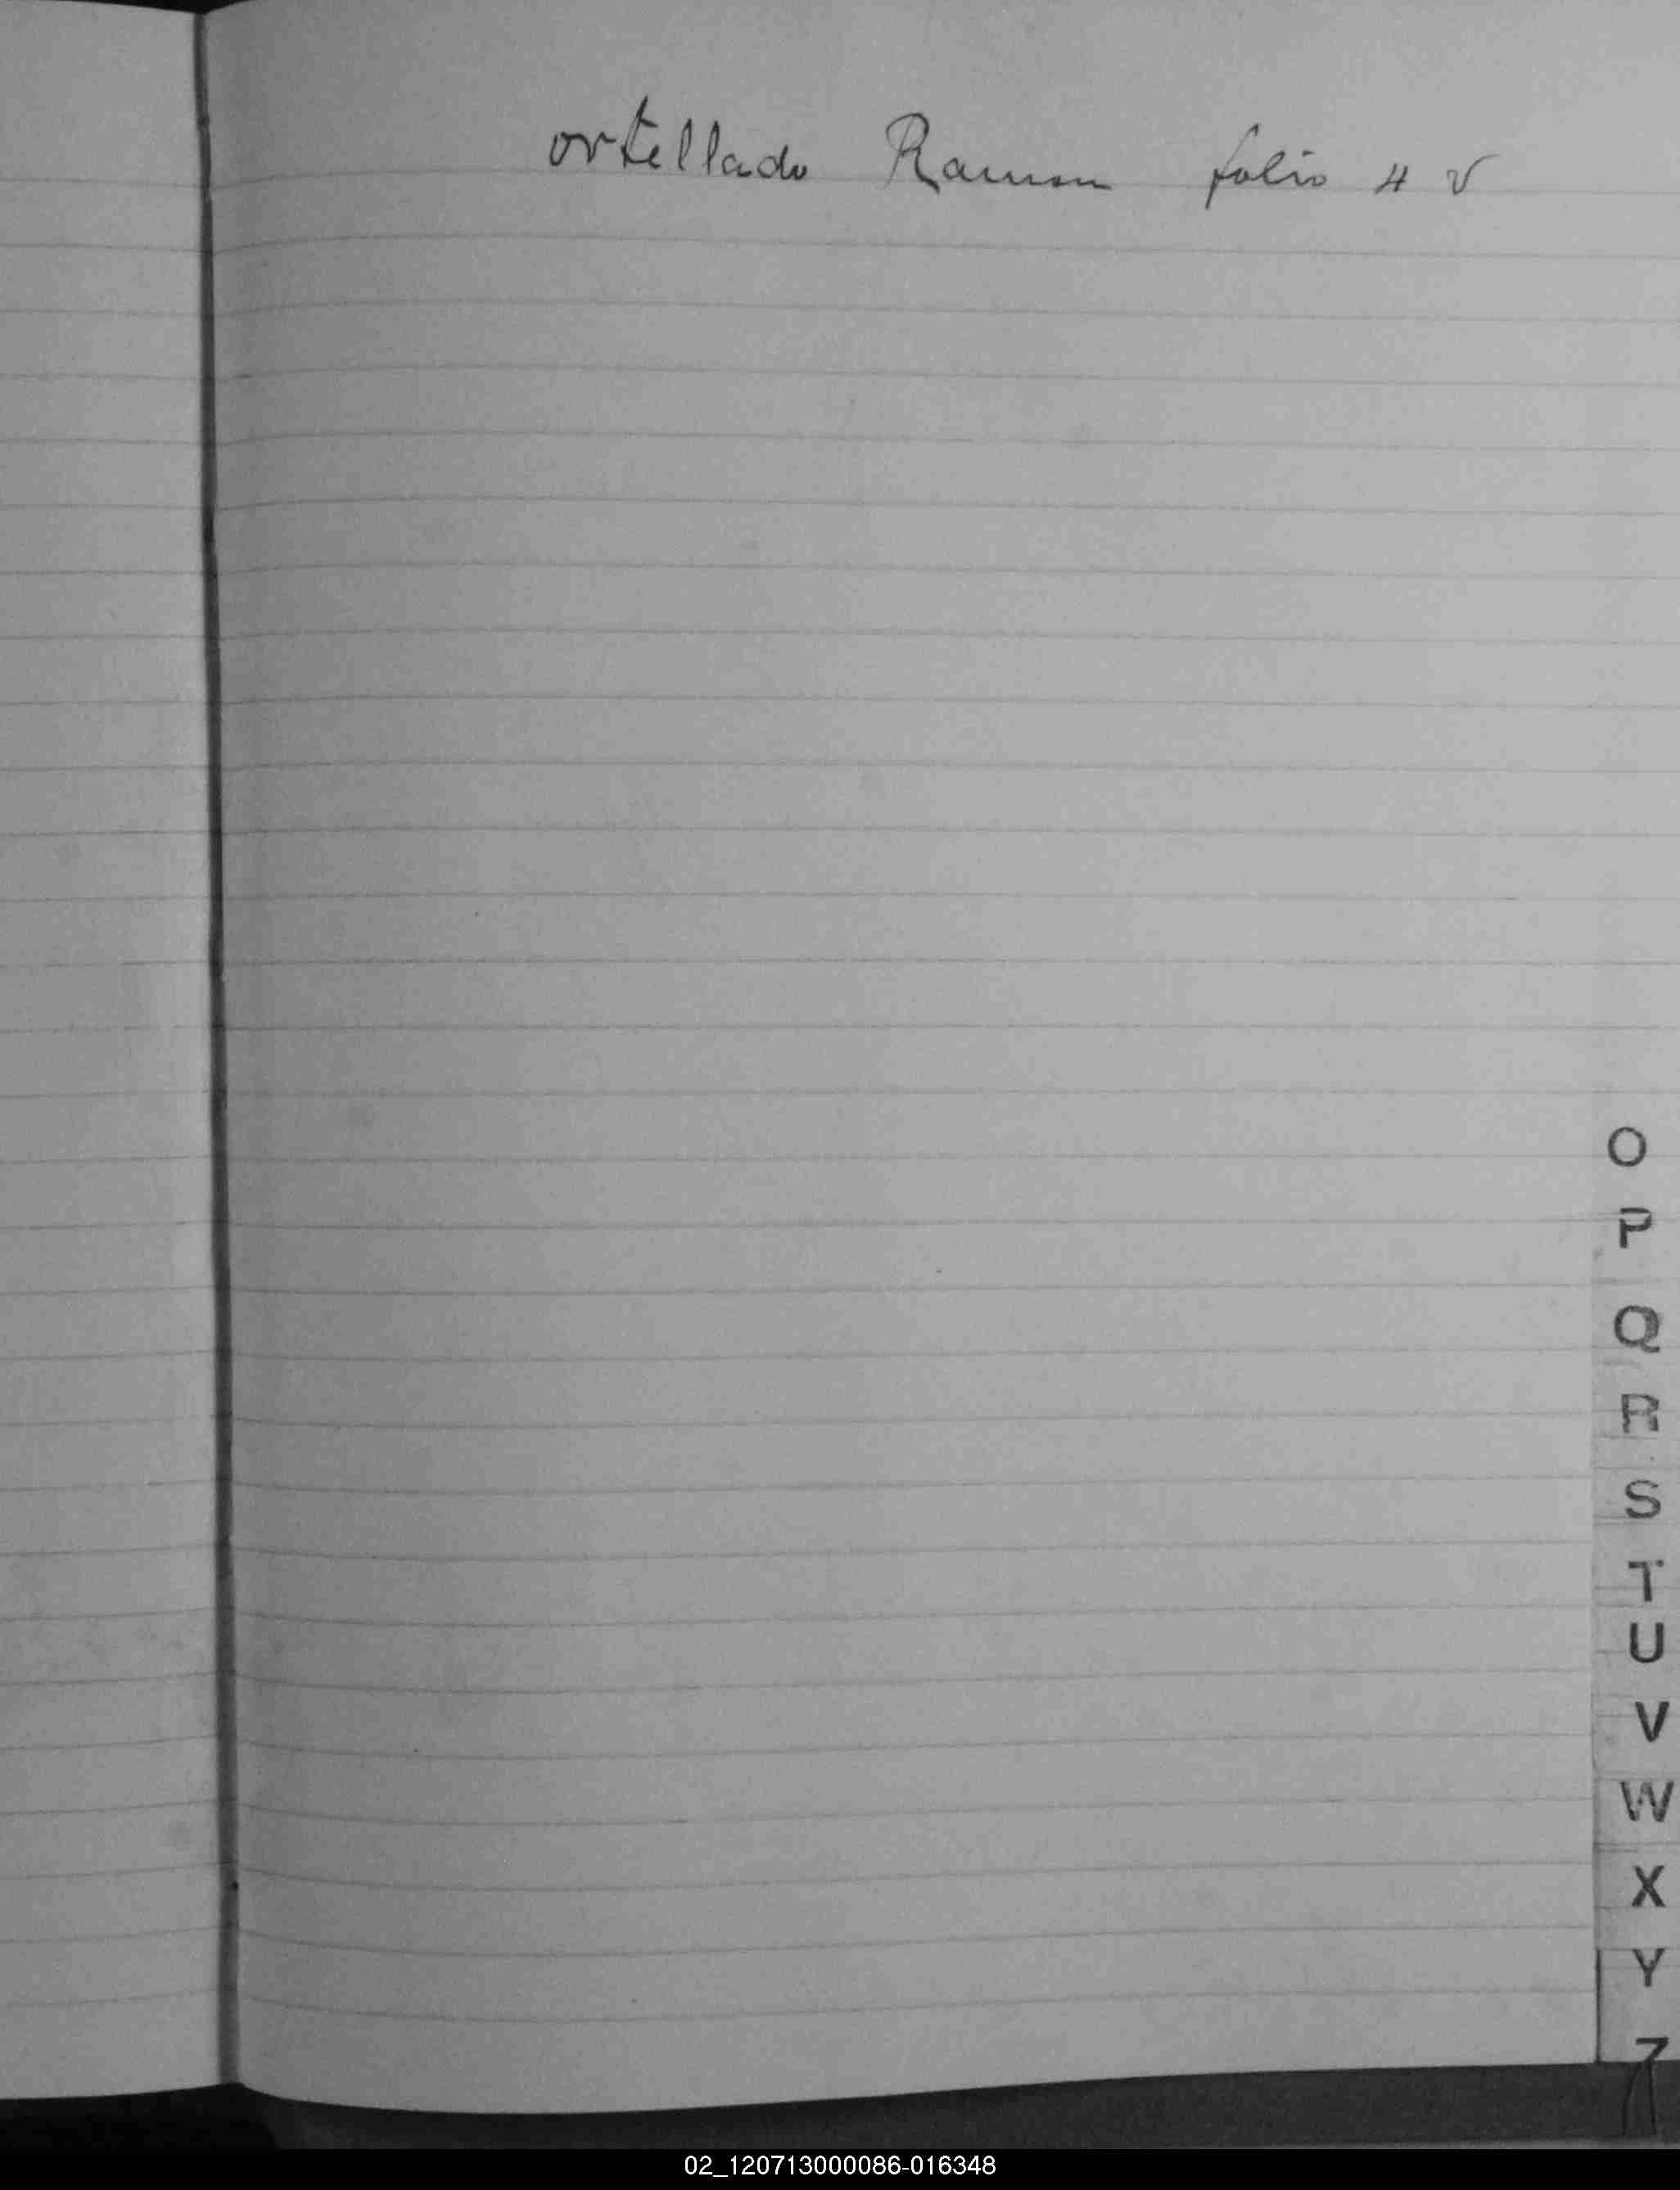 ortellado Ramon folio 4 v
O
P
Q
R
S
T
U
V
W
X
Y
Z
02_120713000086-016348